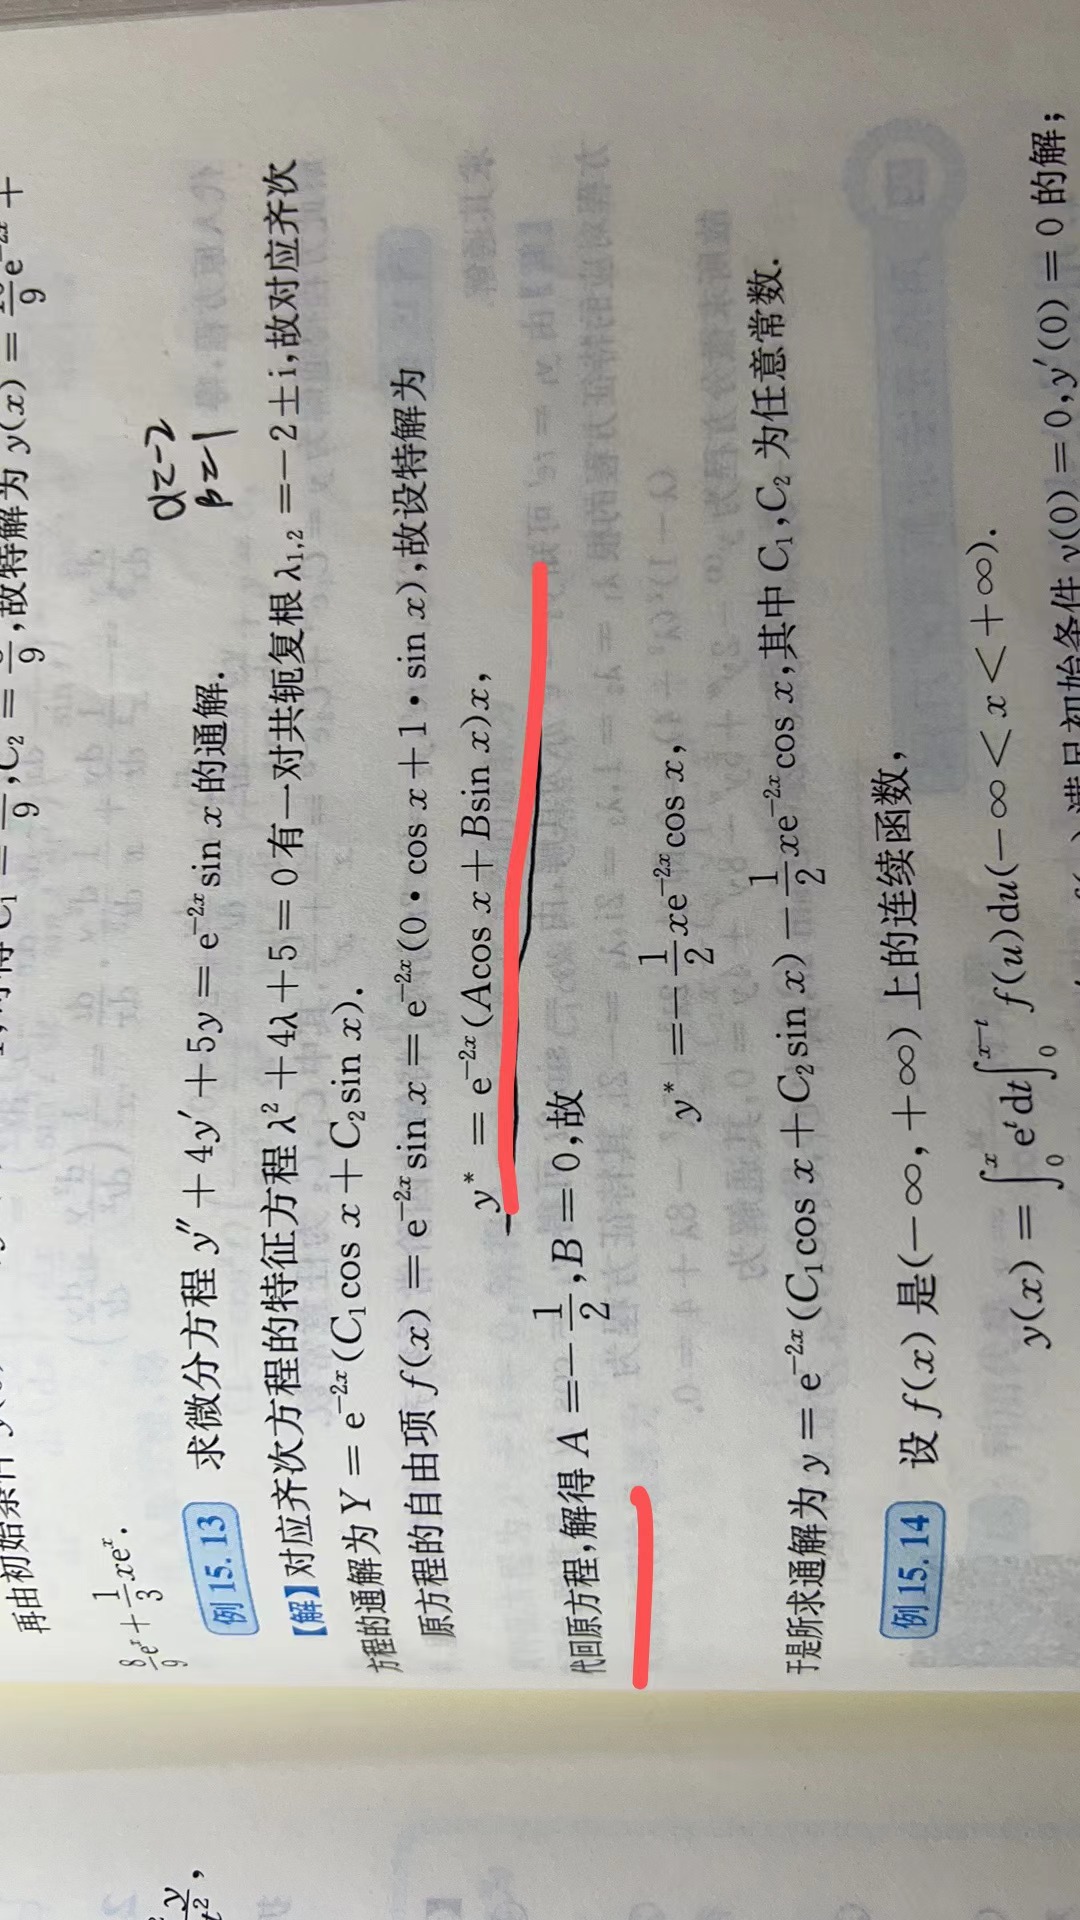 再由初始条件
8/9 e^x + 1/3 xe^x.
α=-2
β=1
例 15.13 求微分方程 y″+4y′+5y=e^{-2x}sin x 的通解.
【解】对应齐次方程的特征方程 λ²+4λ+5=0有一对共轭复根 λ_{1,2}=-2±i,故对应齐次
方程的通解为 Y=e^{-2x}(C₁cos x+C₂sin x).
原方程的自由项 f(x)=e^{-2x}sin x=e^{-2x}(0·cos x+1·sin x),故设特解为
y*=e^{-2x}(Acos x+Bsin x)x,
代回原方程,解得 A=-1/2,B=0,故
y*=-1/2 xe^{-2x}cos x,
于是所求通解为 y=e^{-2x}(C₁cos x+C₂sin x)-1/2 xe^{-2x}cos x,其中 C₁,C₂ 为任意常数.
例 15.14 设 f(x) 是(-∞,+∞) 上的连续函数,
y(x)=∫₀^x e^t dt∫₀^{x-t} f(u)du(-∞<x<+∞).
满足初始条件 y(0)=0,y′(0)=0 的解;